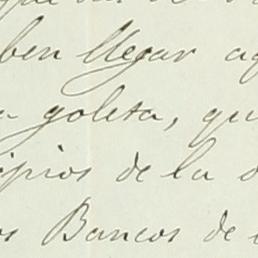 ben llegar aq
a goleta, qu
cipios de la
os Bancos de